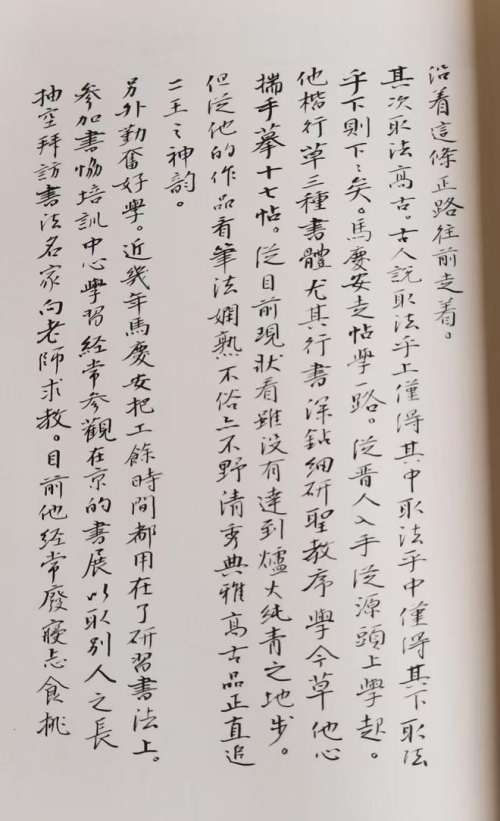 沿着這條正路往前走着。
其次取法高古。古人説取法乎上僅得其中取法乎中僅得其下取法
乎下則下〻矣。馬慶安走帖學一路。從晋人入手從源頭上學起。
他楷行草三種書體尤其行書深鉆細研聖教序學今草他心
揣手摹十七帖。從目前現狀看雖没有達到爐火純青之地步。
但從他的作品看筆法嫻熟不俗不野清秀典雅高古品正直追
二王之神韵。
另外勤奮好學。近幾年馬慶安把工餘時間都用在了研習書法上。
參加書協培訓中心學習經常參觀在京的書展以取别人之長
抽空拜訪書法名家向老師求教。目前他經常廢寢忘食挑